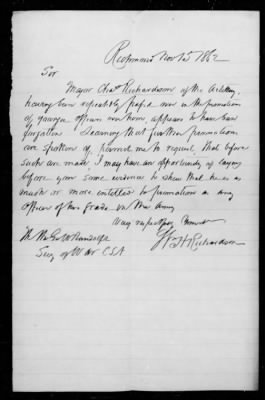 Richmond Nov 12 1862
Sir
Major Chas Richardson of the Artillery,
having been repeatedly passed over in the promotion
of younger officers over him, appears to have been
forgotten. Learning that further promotions
are spoken of, permit me to request, that before
such are made, I may have an opportunity of laying
before you some evidence to show that he is as
much or more entitled to promotion as any
officer of his grade in the Army
Very respectfully
W H Richardson
Geo W Randolph
Secy of War CSA